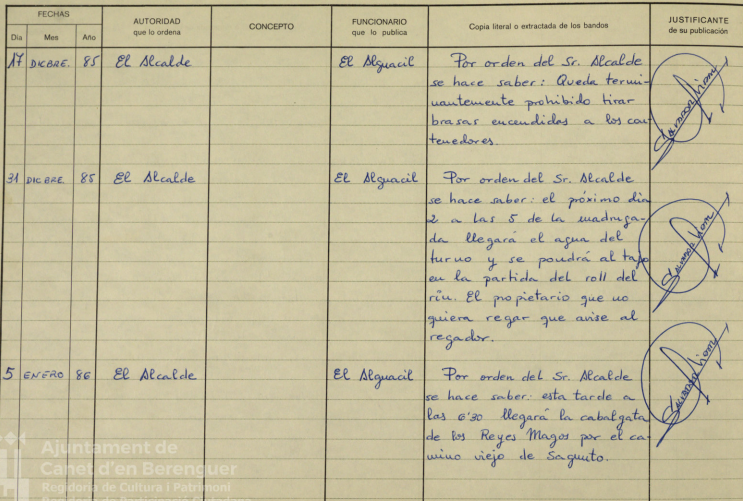 FECHAS
Dia Mes Año
AUTORIDAD
que lo ordena
CONCEPTO
FUNCIONARIO
que lo publica
Copia literal o extractada de los bandos
JUSTIFICANTE
de su publicación
17 DICBRE. 85 El Alcalde El Alguacil Por orden del Sr. Alcalde
se hace saber: Queda termi-
nantemente prohibido tirar
brasas encendidas a los con-
tenedores.
31 DICBRE. 85 El Alcalde El Alguacil Por orden del Sr. Alcalde
se hace saber: el próximo dia
2 a las 5 de la madruga-
da llegará el agua del
turno y se pondrá al tajo
en la partida del roll del
riu. El propietario que no
quiera regar que avise al
regador.
5 ENERO 86 El Alcalde El Alguacil Por orden del Sr. Alcalde
se hace saber: esta tarde a
las 6'30 llegará la cabalgata
de los Reyes Magos por el ca-
mino viejo de Sagunto.
Ajuntament de
Canet d'en Berenguer
Regidoria de Cultura i Patrimoni